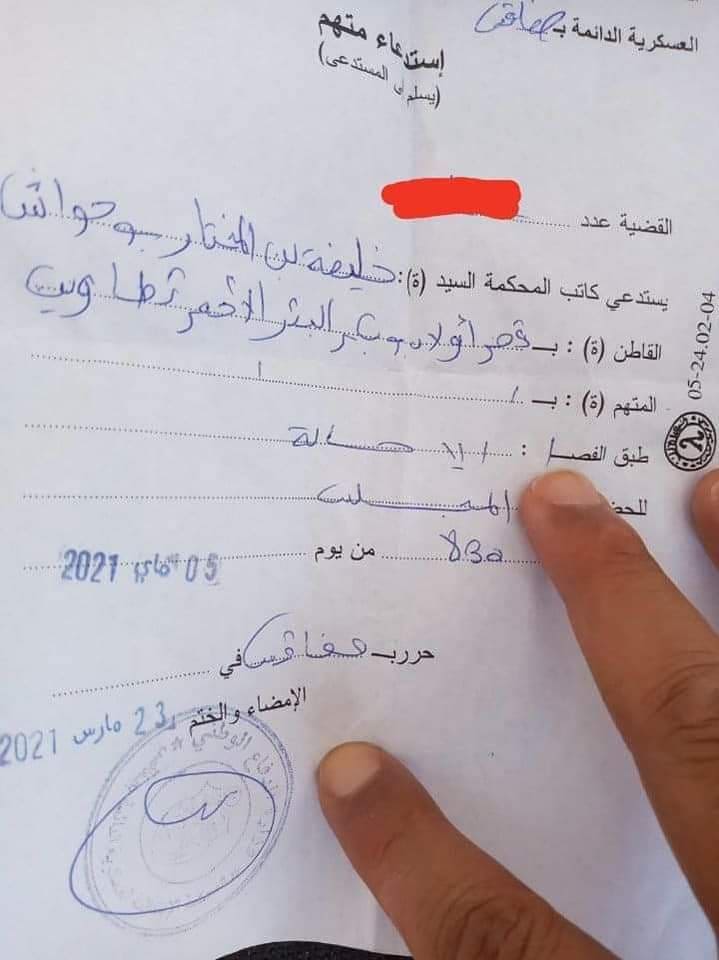 العسكرية الدائمة بـ صفاقس
إستدعاء متهم
(يسلم إلى المستدعى)
القضية عدد
يستدعي كاتب المحكمة السيد (ة): خليفة بن المختار بوحواش
القاطن (ة) : بـ قصر أولاد دباب البئر الأحمر تطاوين
المتهم (ة) : بـ /
طبق الفصل : الإحالة
للحضور المجلس
830 من يوم 05 ماي 2021
حرر بـ صفاقس في
الإمضاء والختم
23 مارس 2021
الدفاع الوطني
05-24.02-04
2